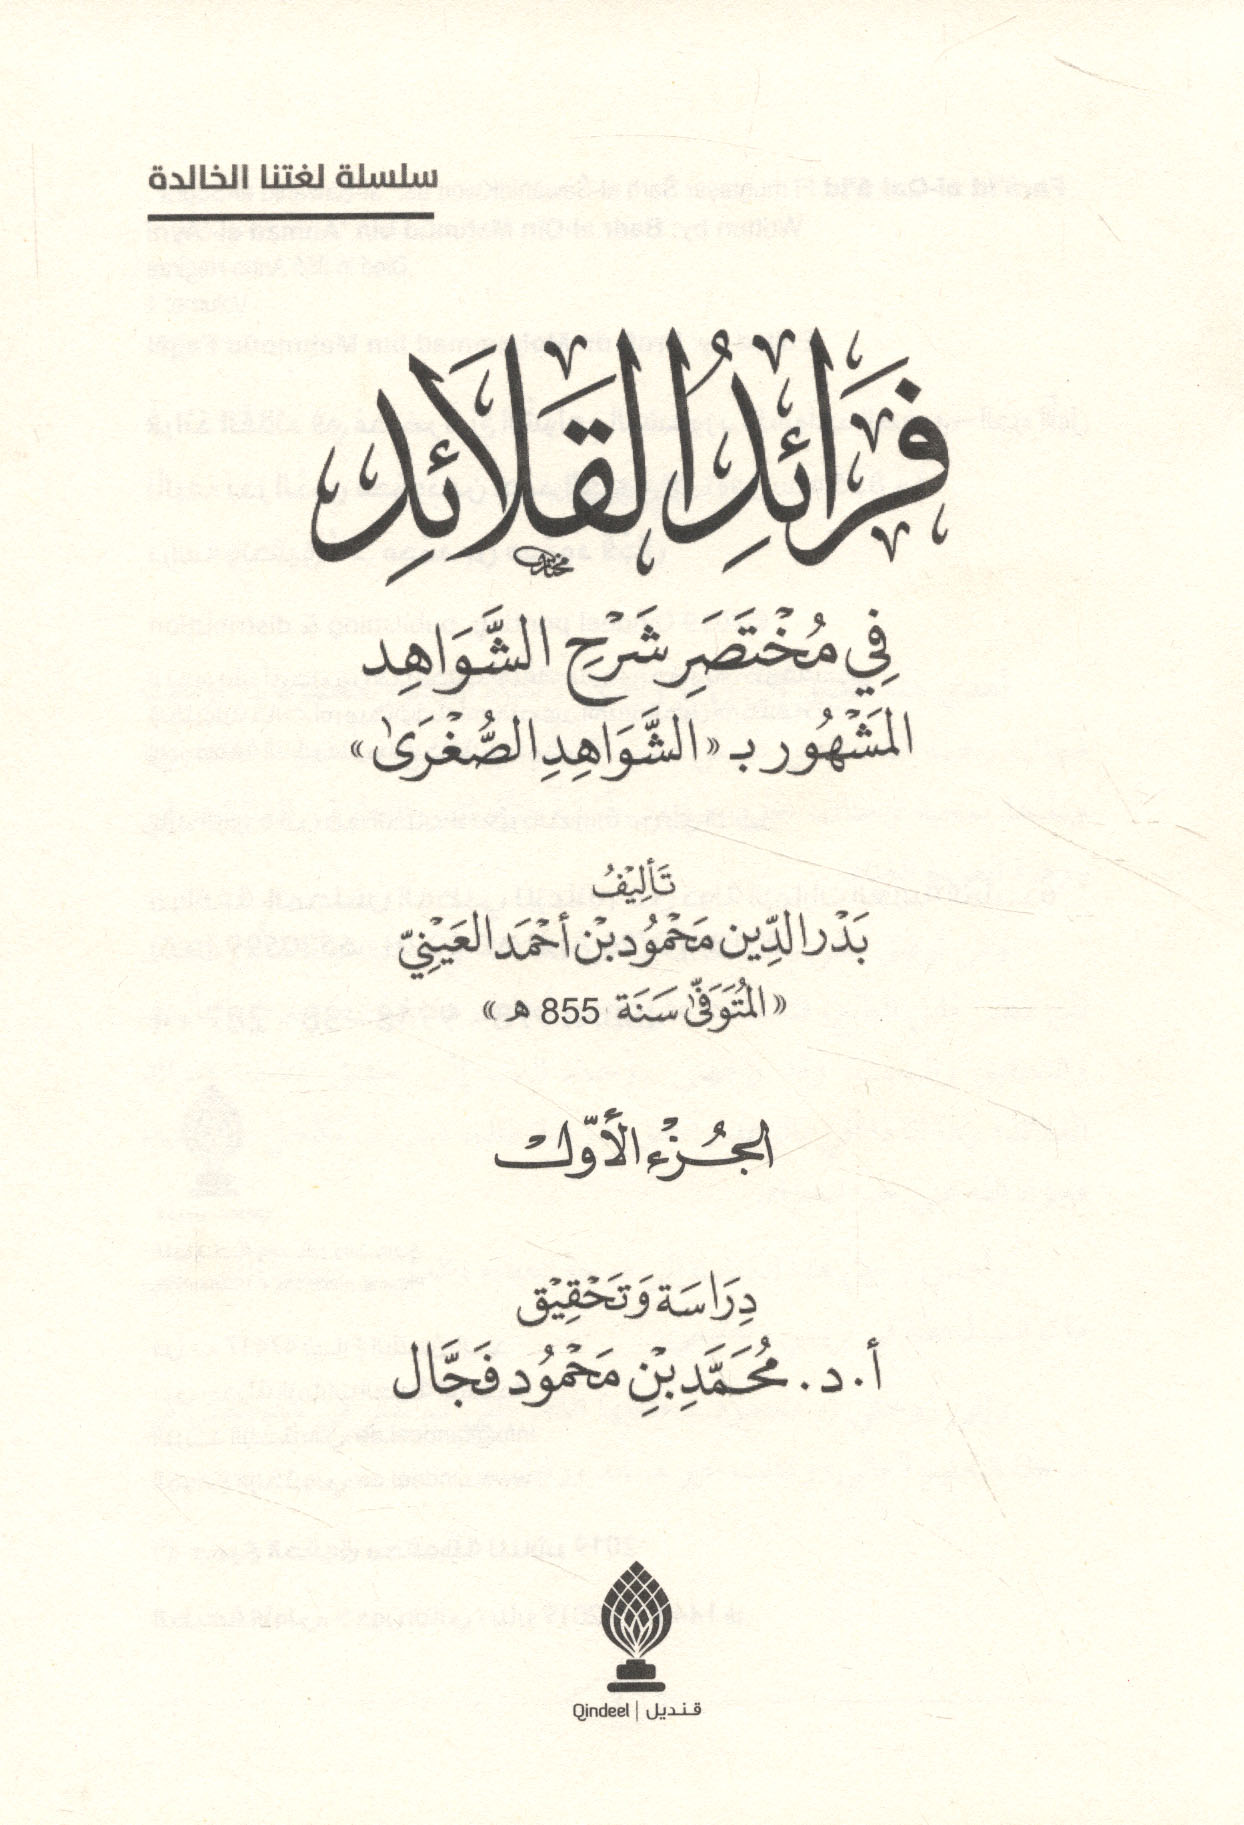 سلسلة لغتنا الخالدة
فَرَائدُ القَلَائِد
فِي مُخْتَصَرِ شَرْحِ الشَّوَاهِد
المَشْهُور بـ «الشَّوَاهِدِ الصُّغْرَىٰ»
تَأْلِيْفُ
بَدْر الدِّين مَحْمُود بْن أَحْمَد العَيْنِيّ
«المُتَوَفَّىٰ سَنَة 855 هـ»
الجُزْء الأَوَّل
دِرَاسَة وَتَحْقِيْق
أ. د. مُحَمَّد بْنِ مَحْمُود فَجَّال
Qindeel | قنديل